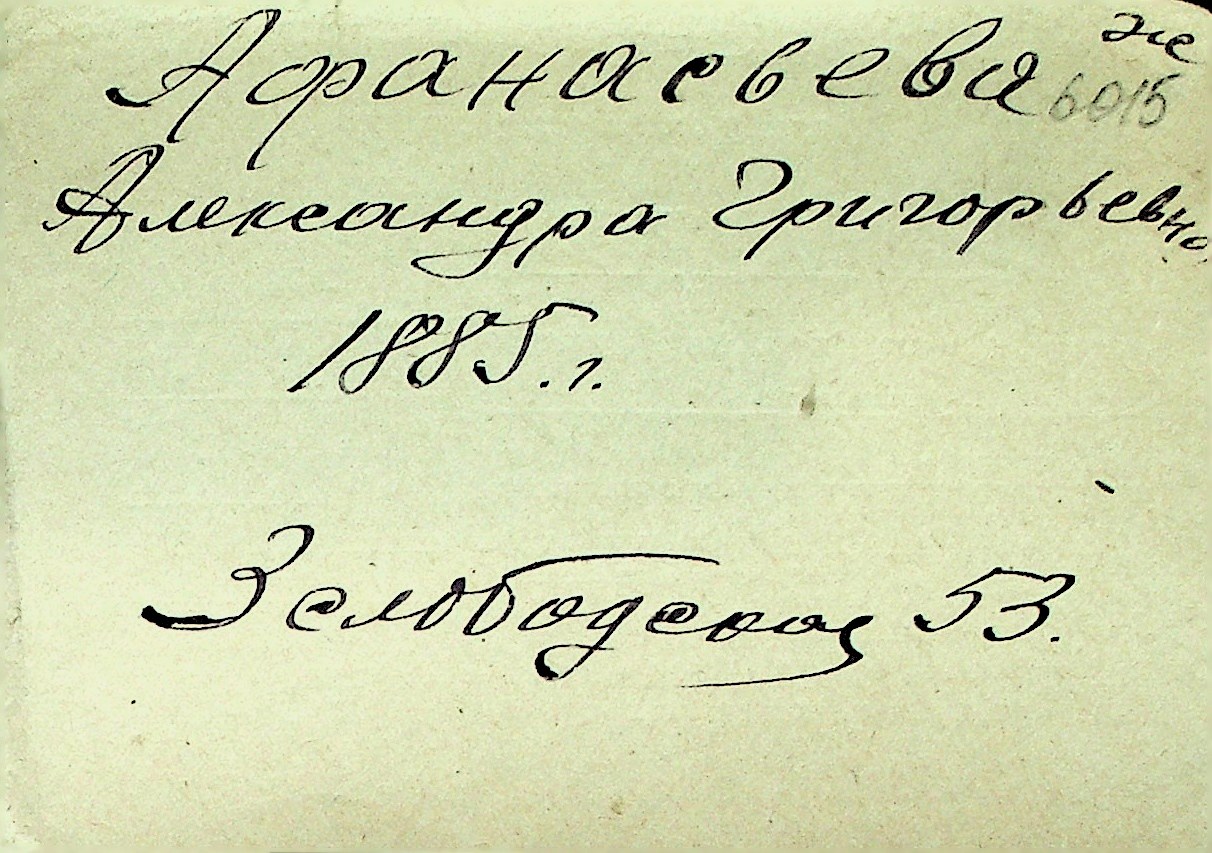 Афанасьева же
6015
Александра Григорьевна
1885.г.
3 слободская 53.